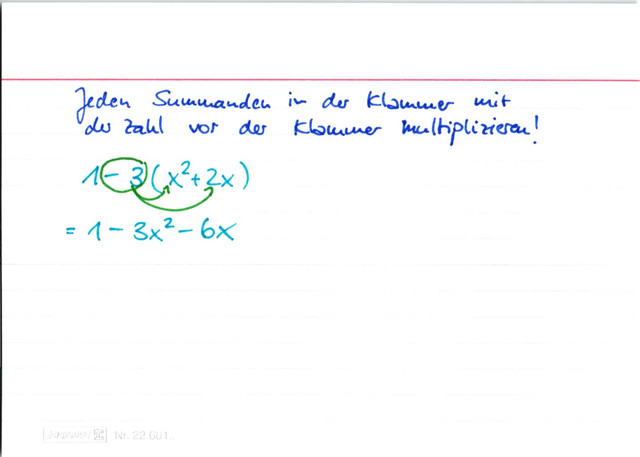 Jeden Summanden in der Klammer mit
der Zahl vor der Klammer multiplizieren!
1 - 3 (x² + 2x)
= 1 - 3x² - 6x
Nr. 22 601